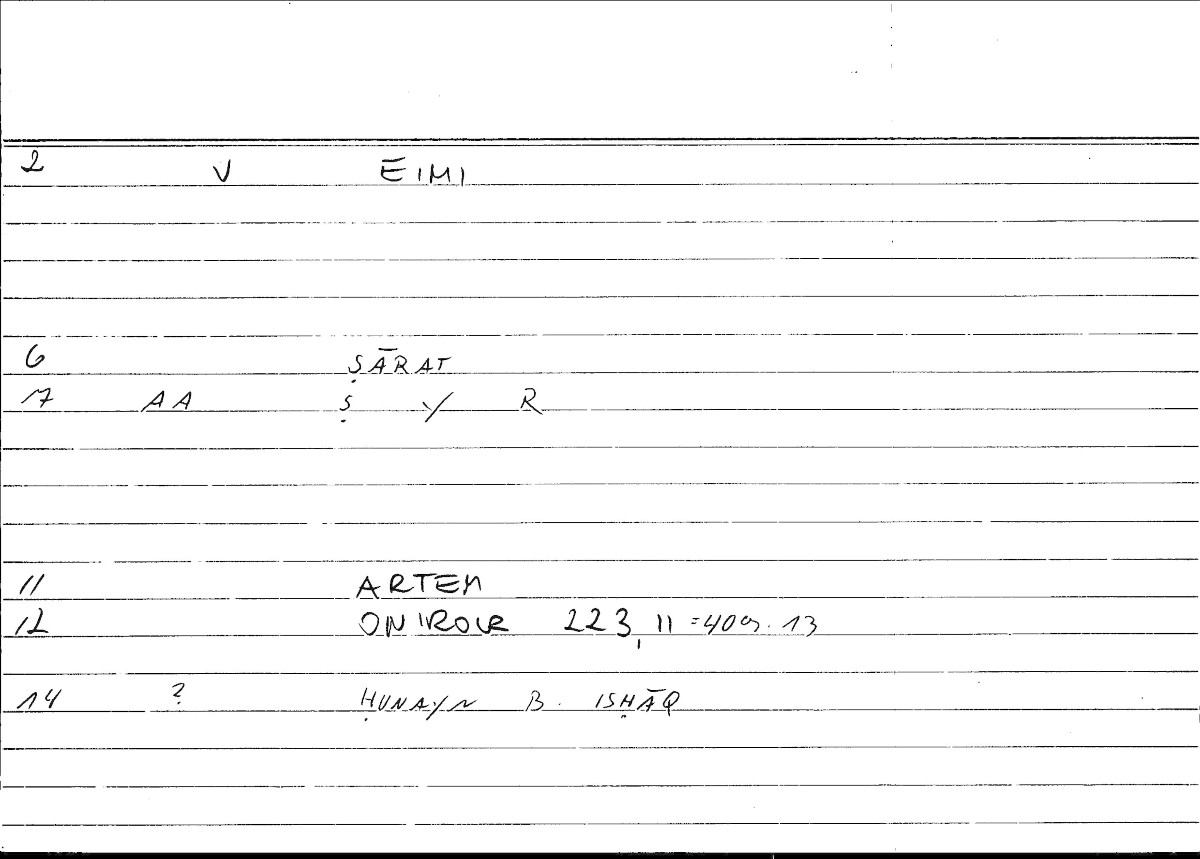 2 V EIMI
6 ṢĀRAT
17 AA Ṣ Y R
11 ARTEM
12 ONIROCR 223, 11 = 409. 13
14 ? ḤUNAYN B. ISḤĀQ